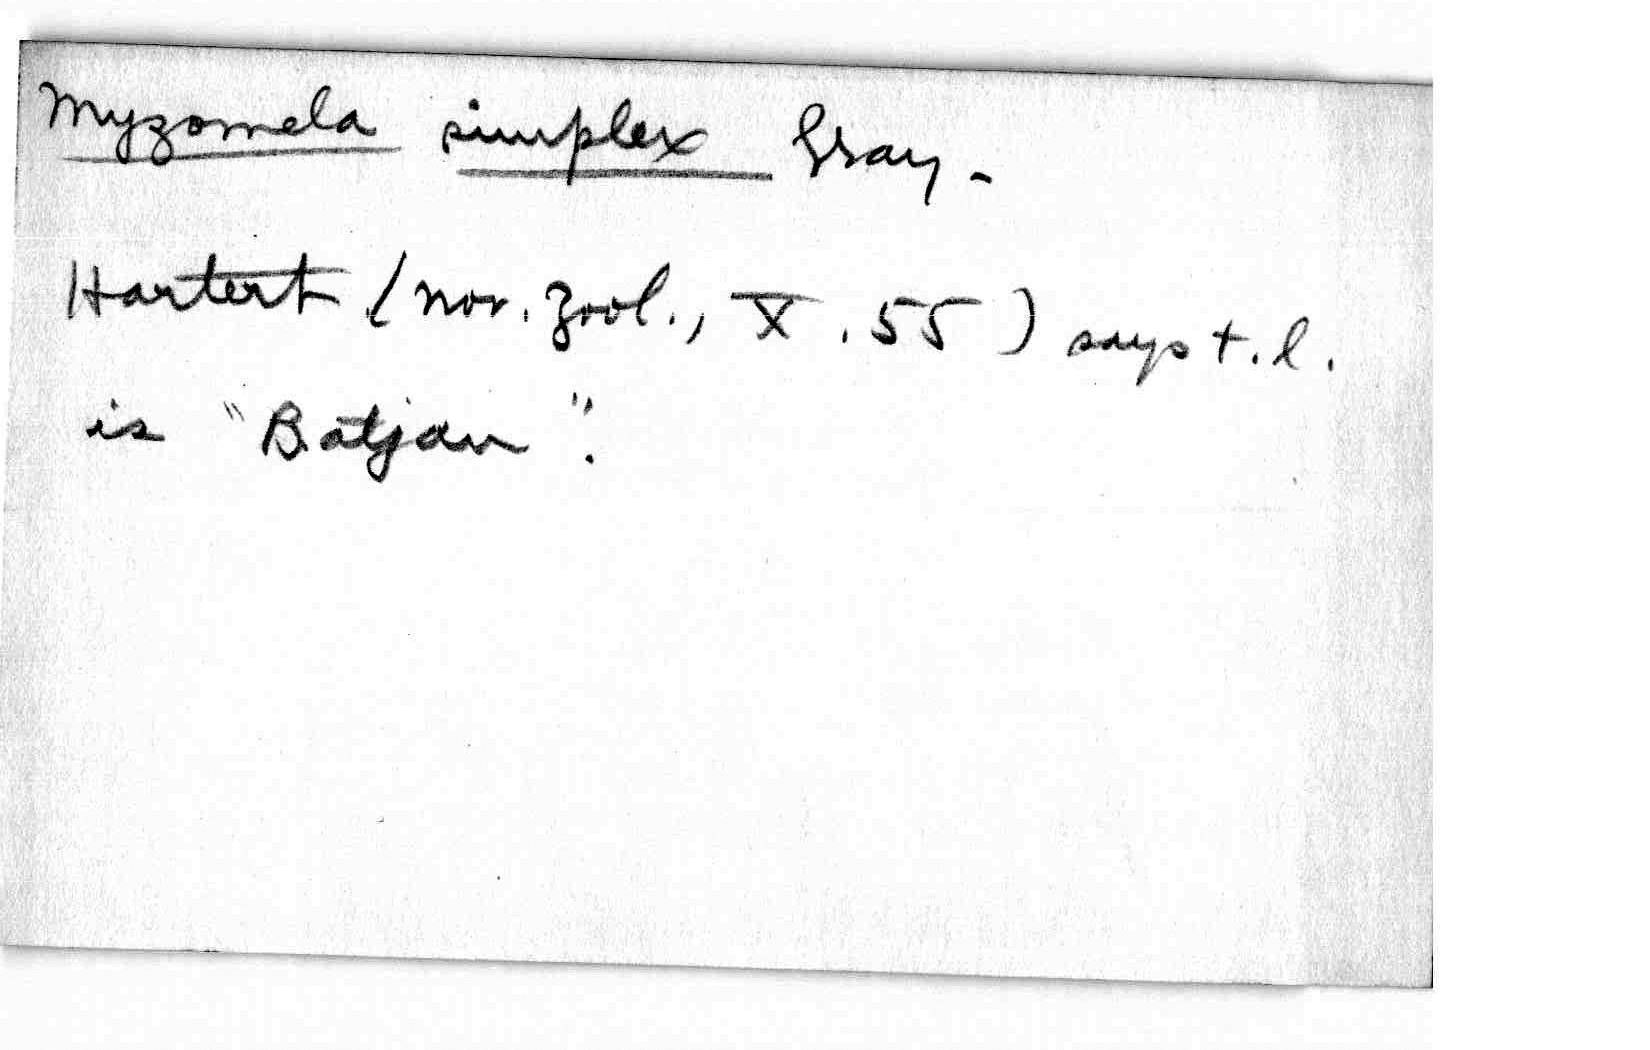 Myzomela simplex Gray -
Hartert (Nov. Zool., X. 55) says t.l.
is "Batjan".